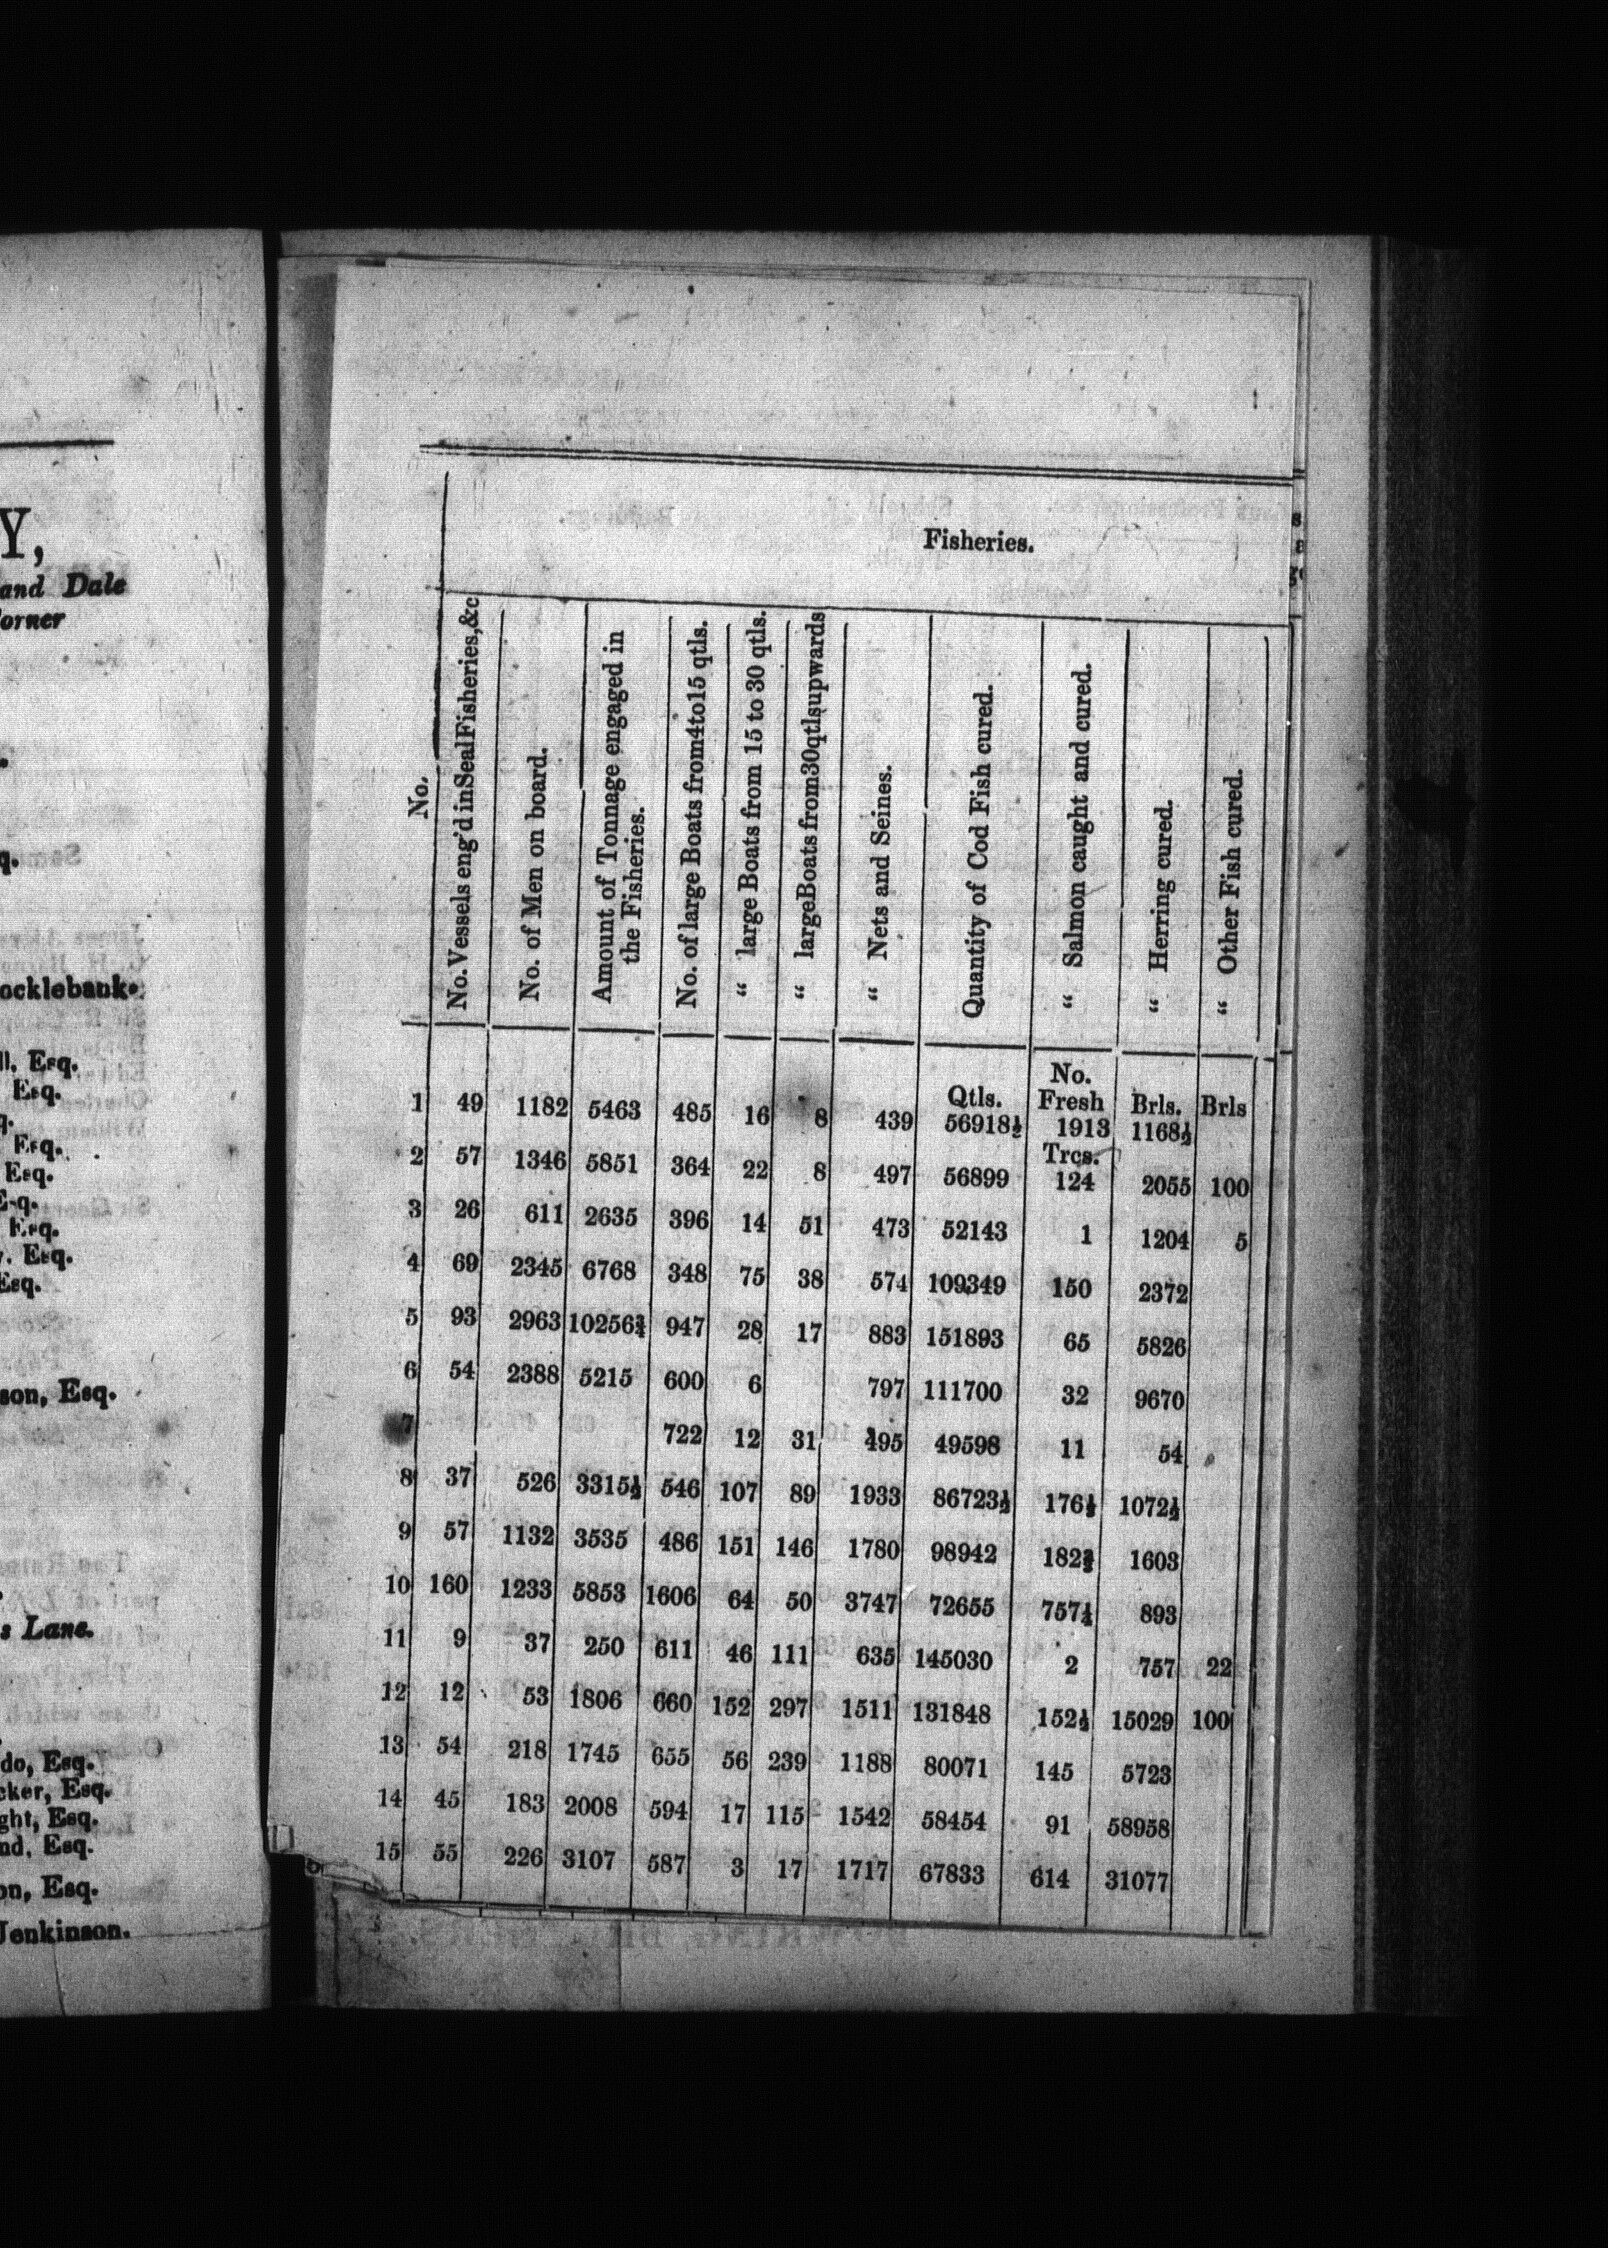 Y,
and Dale
orner
q.
ocklebank.
ll. Esq.
Esq.
q.
Esq.
Esq.
Esq.
Esq.
. Esq.
Esq.
son, Esq.
s Lane.
do, Esq.
cker, Esq.
ght, Esq.
nd, Esq.
on, Esq.
Jenkinson.
Fisheries.
No.
No. Vessels eng'd in Seal Fisheries, &c
No. of Men on board.
Amount of Tonnage engaged in
the Fisheries.
No. of large Boats from 4 to 15 qtls.
“ large Boats from 15 to 30 qtls.
“ large Boats from 30 qtls upwards
“ Nets and Seines.
Quantity of Cod Fish cured.
“ Salmon caught and cured.
“ Herring cured.
“ Other Fish cured.
No.
Qtls. Fresh Brls. Brls
1 49 1182 5463 485 16 8 439 56918½ 1913 1168½
Trcs.
2 57 1346 5851 364 22 8 497 56899 124 2055 100
3 26 611 2635 396 14 51 473 52143 1 1204 5
4 69 2345 6768 348 75 38 574 109349 150 2372
5 93 2963 10256¾ 947 28 17 883 151893 65 5826
6 54 2388 5215 600 6 797 111700 32 9670
7 722 12 31 495 49598 11 54
8 37 526 3315½ 546 107 89 1933 86723½ 176½ 1072½
9 57 1132 3535 486 151 146 1780 98942 182⅔ 1603
10 160 1233 5853 1606 64 50 3747 72655 757¼ 893
11 9 37 250 611 46 111 635 145030 2 757 22
12 12 53 1806 660 152 297 1511 131848 152½ 15029 100
13 54 218 1745 655 56 239 1188 80071 145 5723
14 45 183 2008 594 17 115 1542 58454 91 58958
15 55 226 3107 587 3 17 1717 67833 614 31077